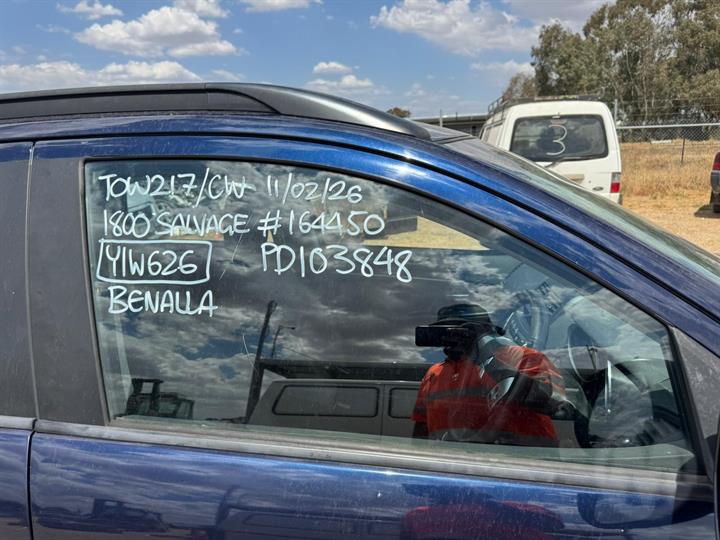 TOW217/CW 11/02/26
1800 SALVAGE #164450
YIW626 PD103848
BENALLA
3